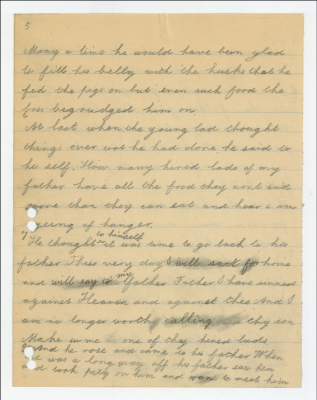 5
Many a time he would have been glad
to fill his belly with the husks that he
fed the pigs on but even such food the
begrudged him on
At last when the young lad thought
things over wot he had done he said to
his self. How many hired lads of my
father have all the food they want and
more than they can eat and hear I am
of hunger.
to himself
He thought it was time to go back to his
father This very day I will start for home
and will say to my father Father I have sinned
against Heaven and against thee And I
am no longer worthy calling thy son
Make me one of they hired lads
And he rose and came to his father When
he was a long way off his father saw him
and took pity on him and to meet him